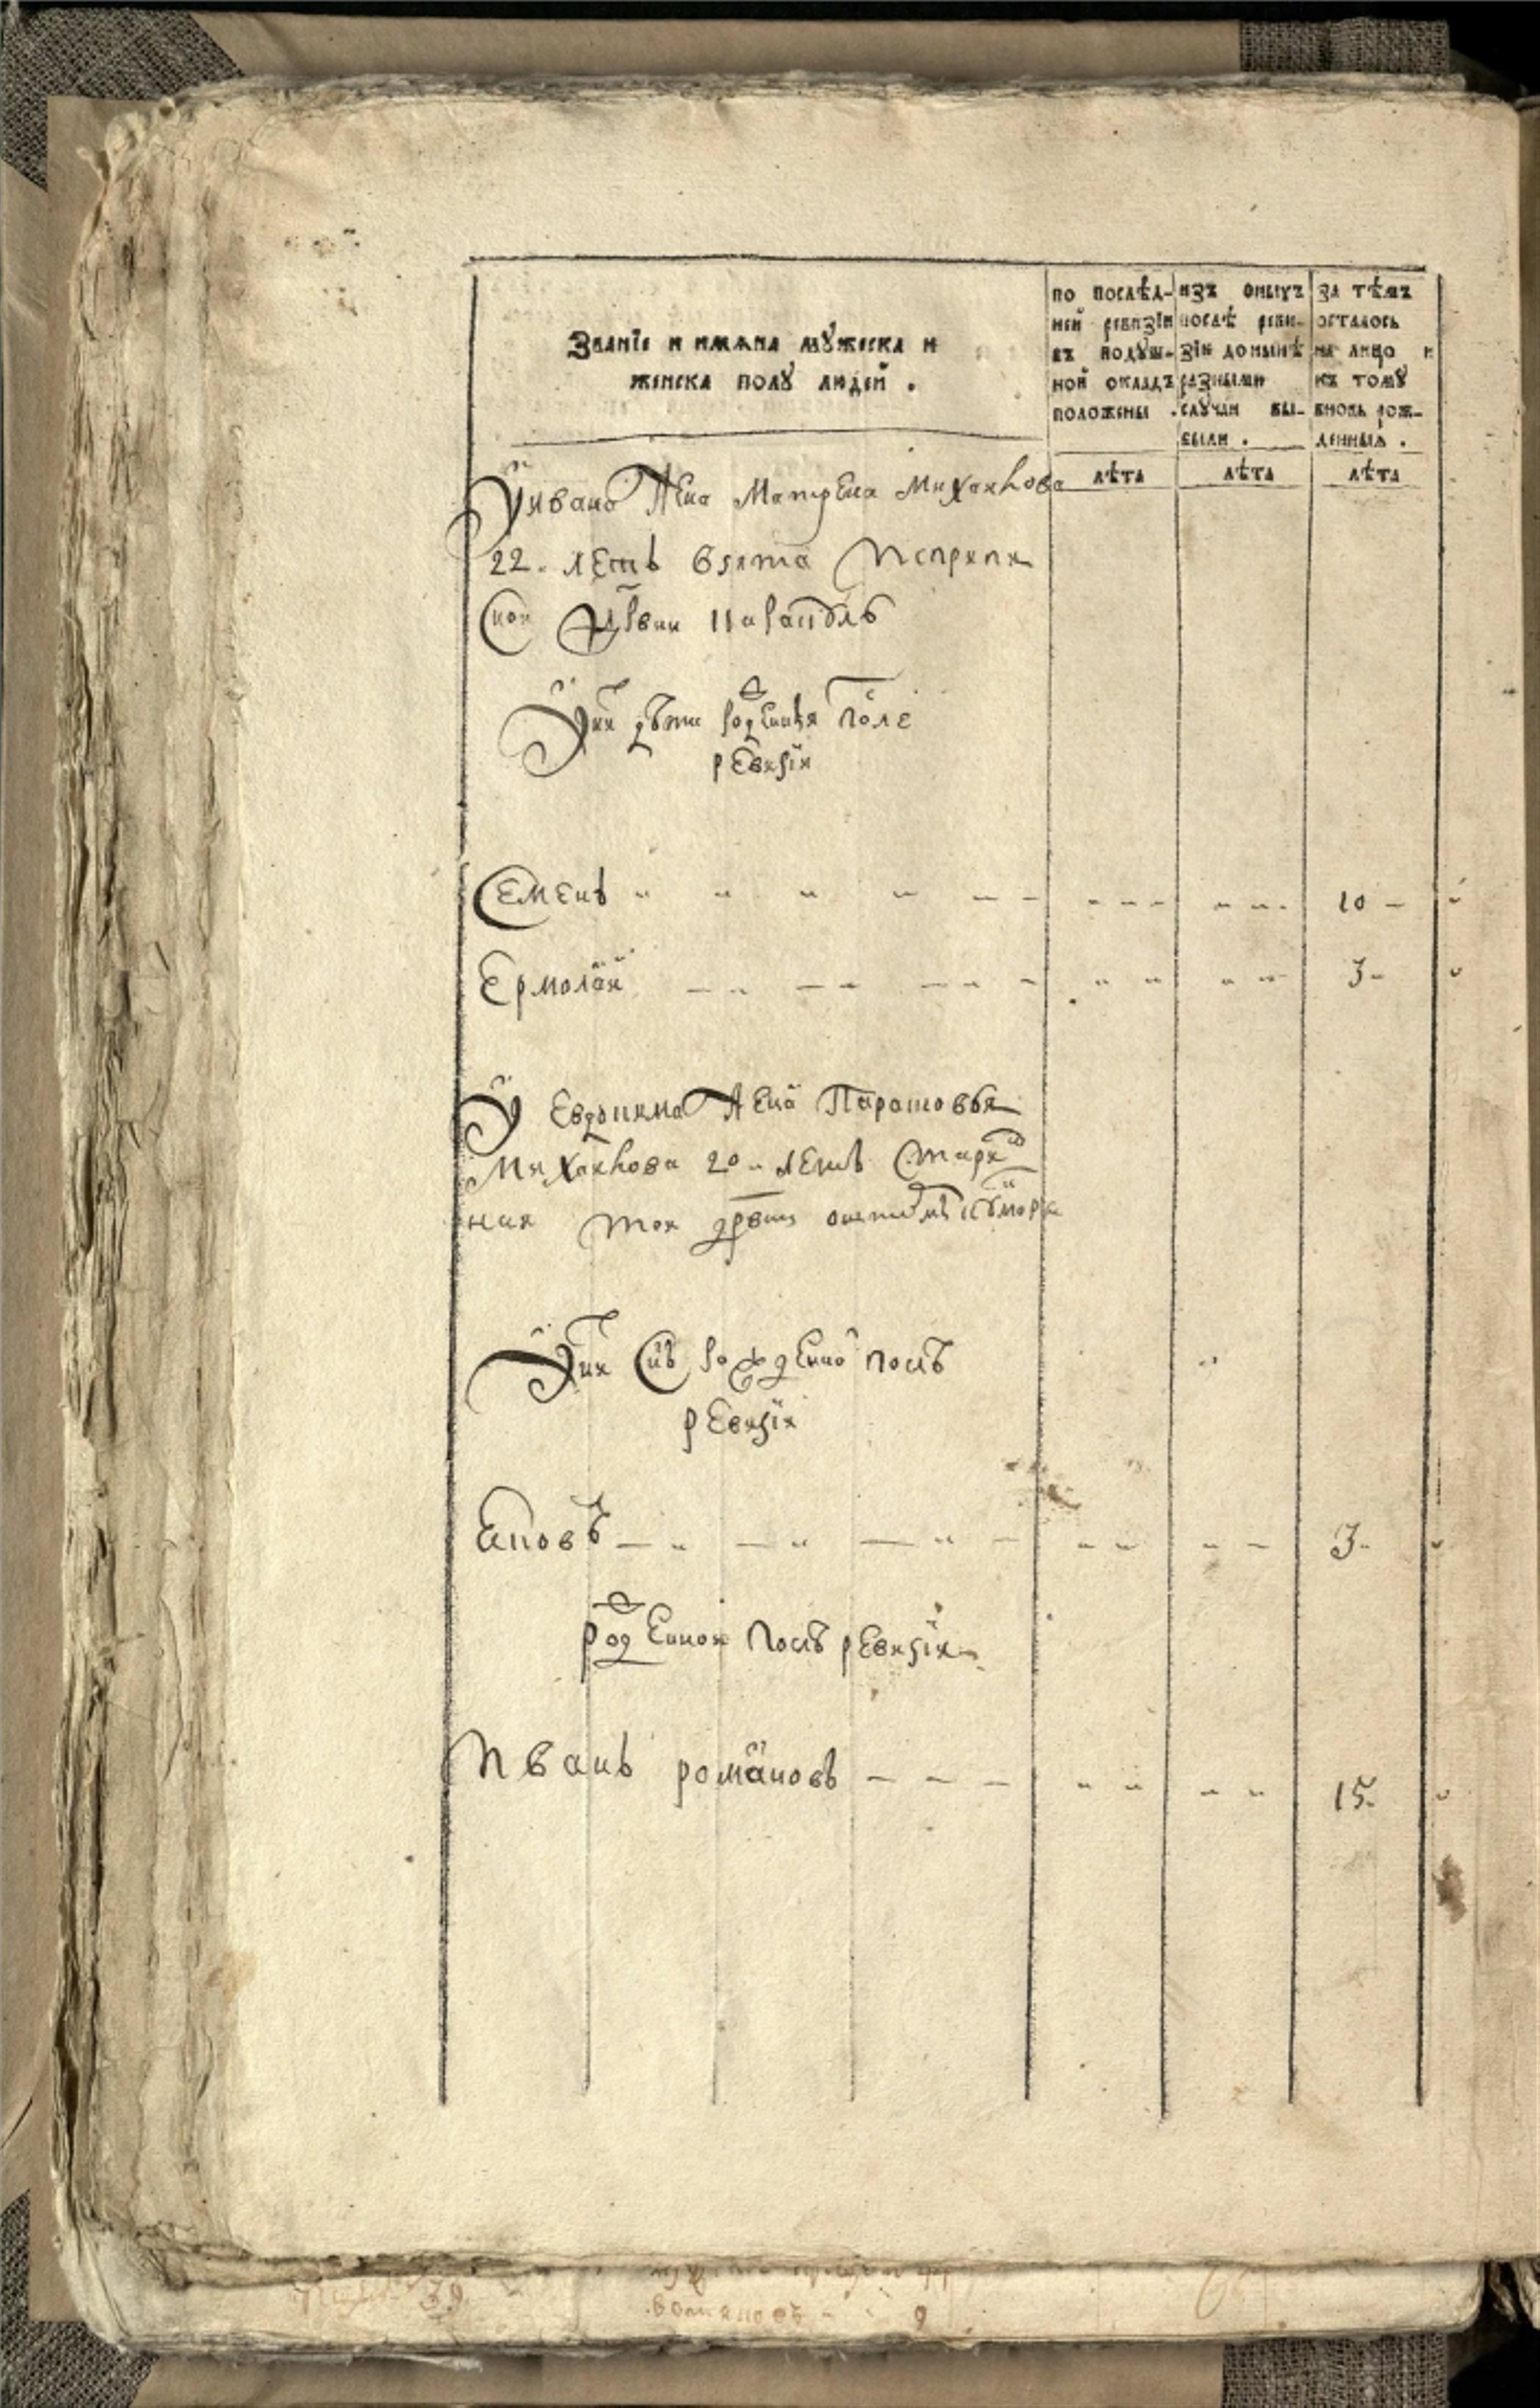 Званїе и имѧна мꙋжеска и
женска полꙋ людей .
по послѣд-
ней ревизїи
въ подꙋш-
ной окладъ
положены .
изъ оныхъ
послѣ реви-
зїи донынѣ
разными
случаи вы-
были .
за тѣмъ
осталось
на лицо и
къ томꙋ
вновь рож-
денныѧ .
лѣта
лѣта
лѣта
Уивана жена Матрена Михаилова
22. летъ взята
У них дѣти рожденныя после
ревизiи
Семенъ 10
Ермолай 3
У Евдокима жена Парасковья
Михаилова 20 летъ
тои
У них снъ рожденно послѣ
ревизiи
3
рожденнои послѣ ревизiи
Иванъ романовъ 15